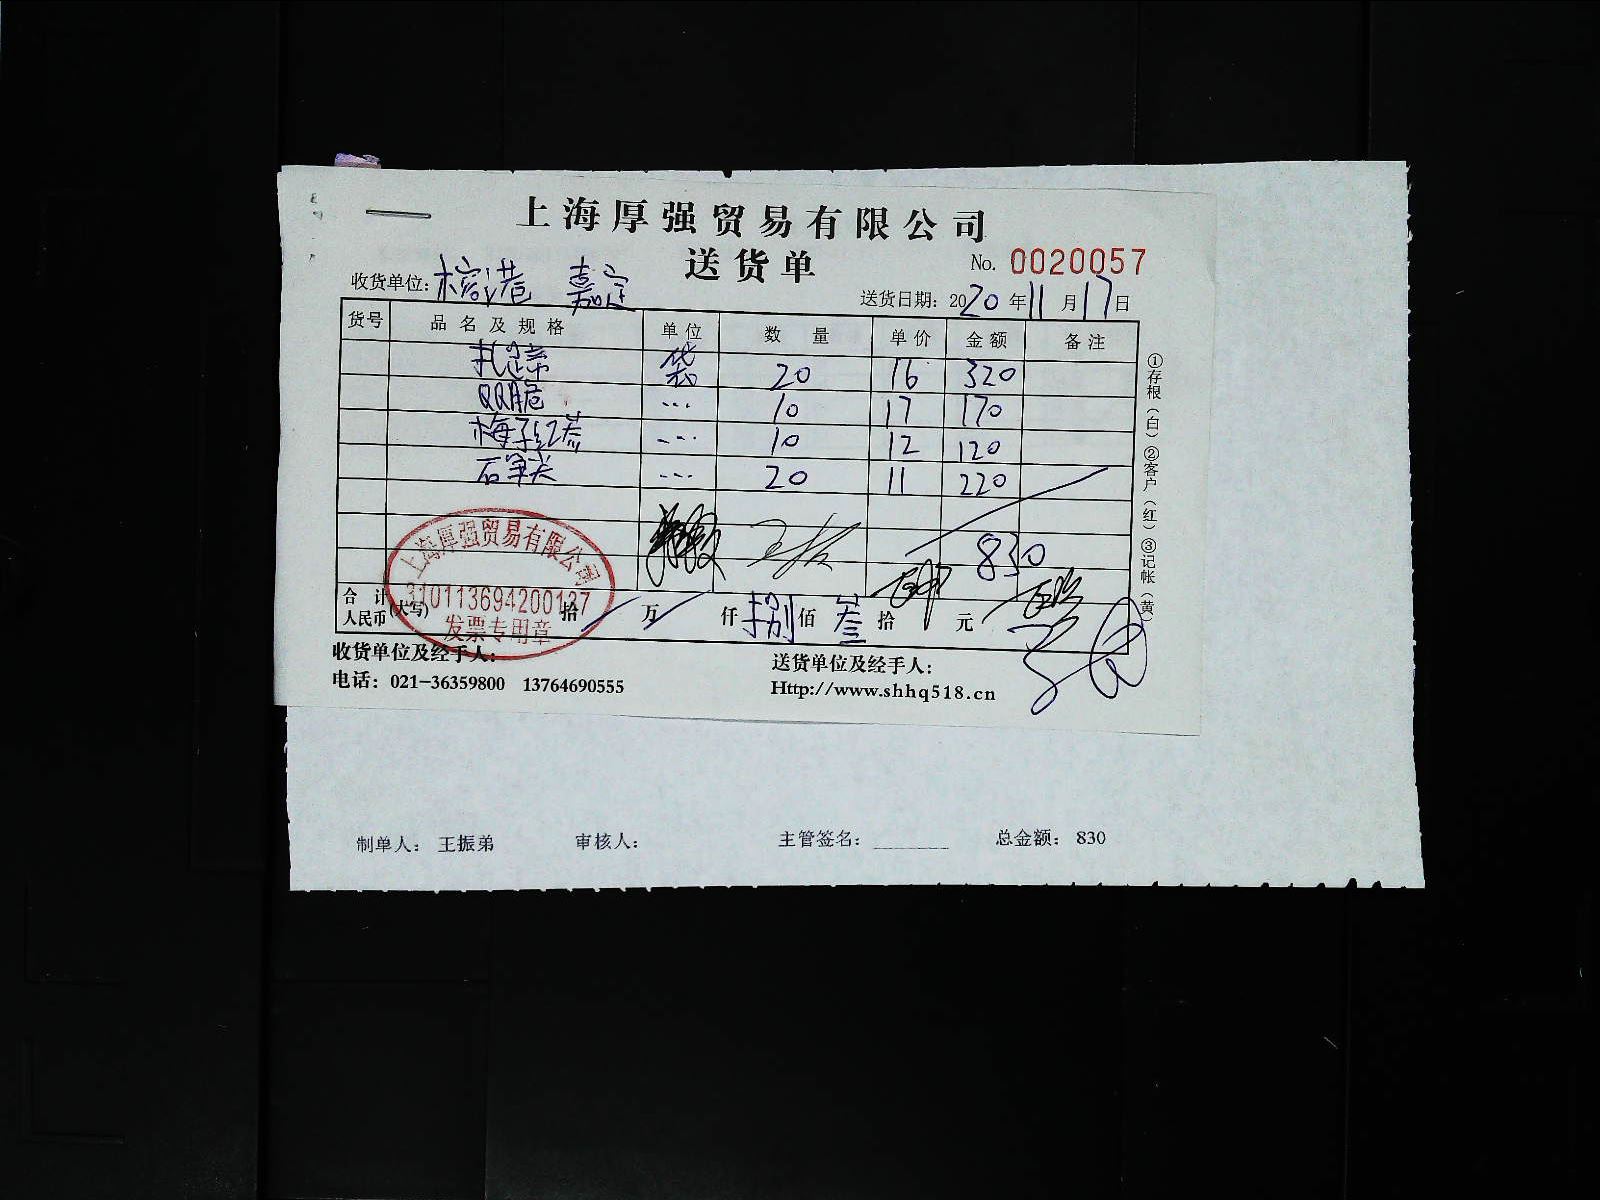 上海厚强贸易有限公司
送货单
No. 0020057
收货单位: 榕港 嘉定
送货日期: 2020年11月17日
货号 品名及规格 单位 数量 单价 金额 备注
扎蹄 袋 20 16 320
QQ脆 〃 10 17 170
梅子红参 〃 10 12 120
石笋尖 〃 20 11 220
830
上海厚强贸易有限公司
310113694200127
发票专用章
合计人民币(大写) 拾 万 仟 捌 佰 叁 拾 元
收货单位及经手人:
送货单位及经手人:
电话: 021-36359800 13764690555
Http://www.shhq518.cn
①存根(白)②客户(红)③记帐(黄)
制单人: 王振弟 审核人: 主管签名: 总金额: 830